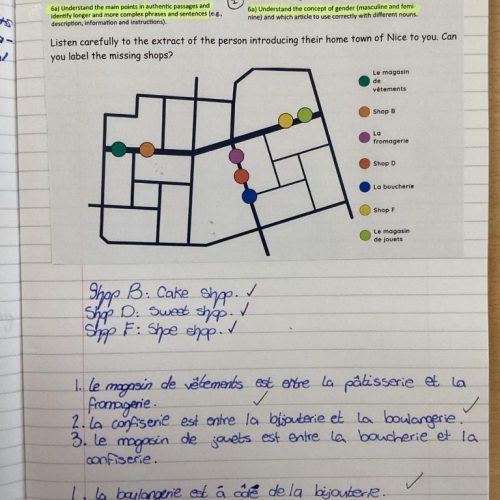 6a) Understand the main points in authentic passages and
identify longer and more complex phrases and sentences (e.g.,
description, information and instructions).
6a) Understand the concept of gender (masculine and femi-
nine) and which article to use correctly with different nouns.
Listen carefully to the extract of the person introducing their home town of Nice to you. Can
you label the missing shops?
Le magasin
de
vêtements
Shop B
La
fromagerie
Shop D
La boucherie
Shop F
Le magasin
de jouets
Shop B: Cake shop. ✓
Shop D: Sweet shop. ✓
Shop F: Shoe shop. ✓
1. Le magasin de vêtements est entre la pâtisserie et la
fromagerie. ✓
2. La confiserie est entre la bijouterie et la boulangerie. ✓
3. Le magasin de jouets est entre la boucherie et la
confiserie.
1. La boulangerie est á côté de la bijouterie. ✓